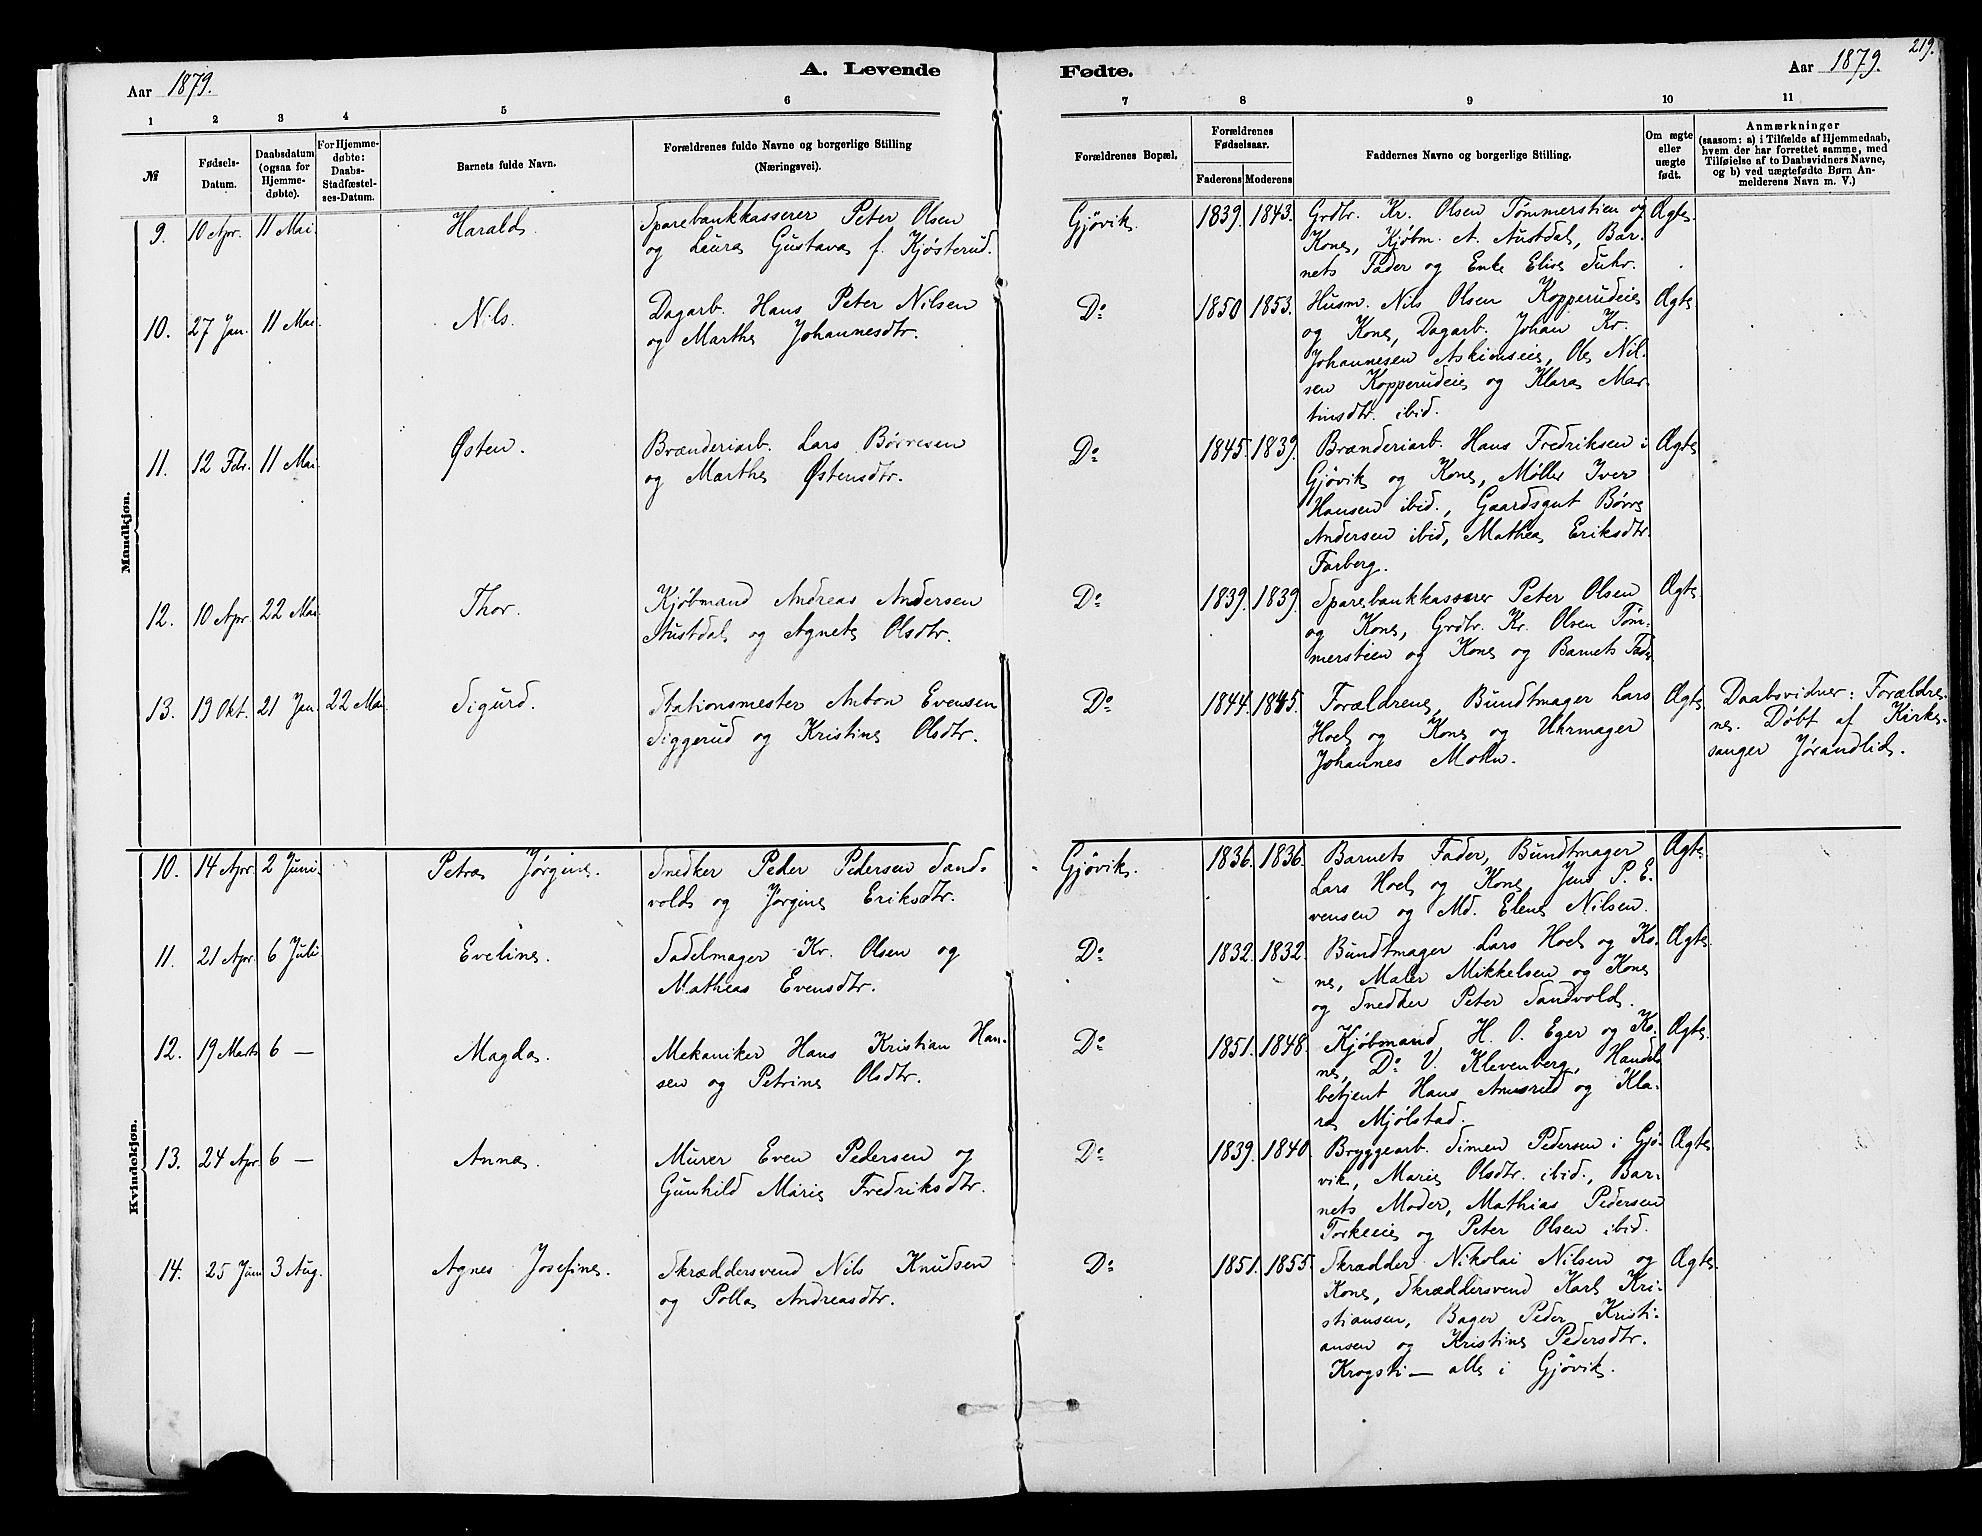 219.
Aar 1879. A. Levende Fødte. Aar 1879.
1 2 3 4 5 6 7 8 9 10 11
№
Fødsels-
Datum.
Daabsdatum
(ogsaa for
Hjemme-
døbte).
For Hjemme-
døbte:
Daabs-
Stadfæstel-
ses-Datum.
Barnets fulde Navn.
Forældrenes fulde Navne og borgerlige Stilling
(Næringsvei).
Forældrenes Bopæl.
Forældrenes
Fødselsaar.
Faderens Moderens
Faddernes Navne og borgerlige Stilling.
Om ægte
eller
uægte
født.
Anmærkninger
(saasom: a) i Tilfælde af Hjemmedaab,
hvem der har forrettet samme, med
Tilføielse af to Daabsvidners Navne,
og b) ved uægtefødte Børn An-
melderens Navn m. V.)
Mandkjøn.
9. 10 Apr. 11 Mai. Harald.
Sparebankkasserer Peter Olsen
og Laura Gustava f. Kjösterud.
Gjövik. 1839. 1843.
Grdbr. Kr. Olsen Tömmerstien og
Kone, Kjöbm. A. Austdal, Bar-
nets Fader og Enke Elise Suhr.
Ægte
10. 27 Jan. 11 Mai. Nils.
Dagarb. Hans Peter Nilsen
og Marthe Johannesdtr.
Do 1850 1853.
Husm. Nils Olsen Kopperudeie
og Kone, Dagarb. Johan Kr.
Johannesen Askimseie, Ole Nil-
sen Kopperudeie og Klara Mar-
tinsdtr. ibid.
Ægte
11. 12 Feb. 11 Mai. Østen.
Brænderiarb. Lars Börresen
og Marthe Østensdtr.
Do 1845. 1839.
Brænderiarb. Hans Fredriksen i
Gjövik og Kone, Møller Iver
Hansen ibid., Gaardsgut Börre
Andersen ibid, Mathea Eriksdtr.
Farberg.
Ægte
12. 10 Apr. 22 Mai. Thor.
Kjöbmand Andreas Andersen
Austdal og Agnete Olsdtr.
Do 1839. 1839.
Sparebankkasserer Peter Olsen
og Kone, Grdbr. Kr. Olsen Töm-
merstien og Kone og Barnets Fader.
Ægte
13. 19 Okt. 21 Jan. 22 Mai. Sigurd.
Stationsmester Anton Evensen
Siggerud og Kristine Olsdtr.
Do 1844. 1845.
Forældrene, Bundtmager Lars
Hoel og Kone og Uhrmager
Johannes Mohn.
Ægte
Daabsvidner: Forældre-
ne. Döbt af Kirke-
sanger Jörandlid.
Kvindekjøn.
10. 14 Apr. 2 Juni. Petra Jörgine.
Snedker Peder Pedersen Sand-
vold og Jörgine Eriksdtr.
Gjövik. 1836. 1836.
Barnets Fader, Bundtmager
Lars Hoel og Kone, Jens P. E-
vensen og Md. Elene Nilsen.
Ægte
11. 21 Apr. 6 Juli Eveline.
Sadelmager Kr. Olsen og
Mathea Evensdtr.
Do 1832. 1832.
Bundtmager Lars Hoel og Ko-
ne, Maler Mikkelsen og Kone
og Snedker Peter Sandvold.
Ægte
12. 19 Marts 6 — Magda.
Mekaniker Hans Kristian Han-
sen og Petrine Olsdtr.
Do 1851. 1848.
Kjöbmand H. O. Eger og Ko-
ne, Do V. Klevenberg, Handels-
betjent Hans Amsrud og Kla-
ra Mjölstad.
Ægte
13. 24 Apr. 6 — Anna.
Murer Even Pedersen og
Gunhild Marie Fredriksdtr.
Do 1839. 1840.
Bryggearb. Simen Pedersen i Gjö-
vik, Marie Olsdtr. ibid., Bar-
nets Moder, Mathias Pedersen
og Peter Olsen ibid.
Ægte
14. 25 Juni 3 Aug. Agnes Josefine.
Skræddersvend Nils Knudsen
og Polla Andreasdtr.
Do 1851. 1855.
Skrædder Nikolai Nilsen og
Kone, Skræddersvend Karl Kri-
stiansen, Bager Peder Kristi-
ansen og Kristine Pedersdtr.
Krogsti — alle i Gjövik.
Ægte